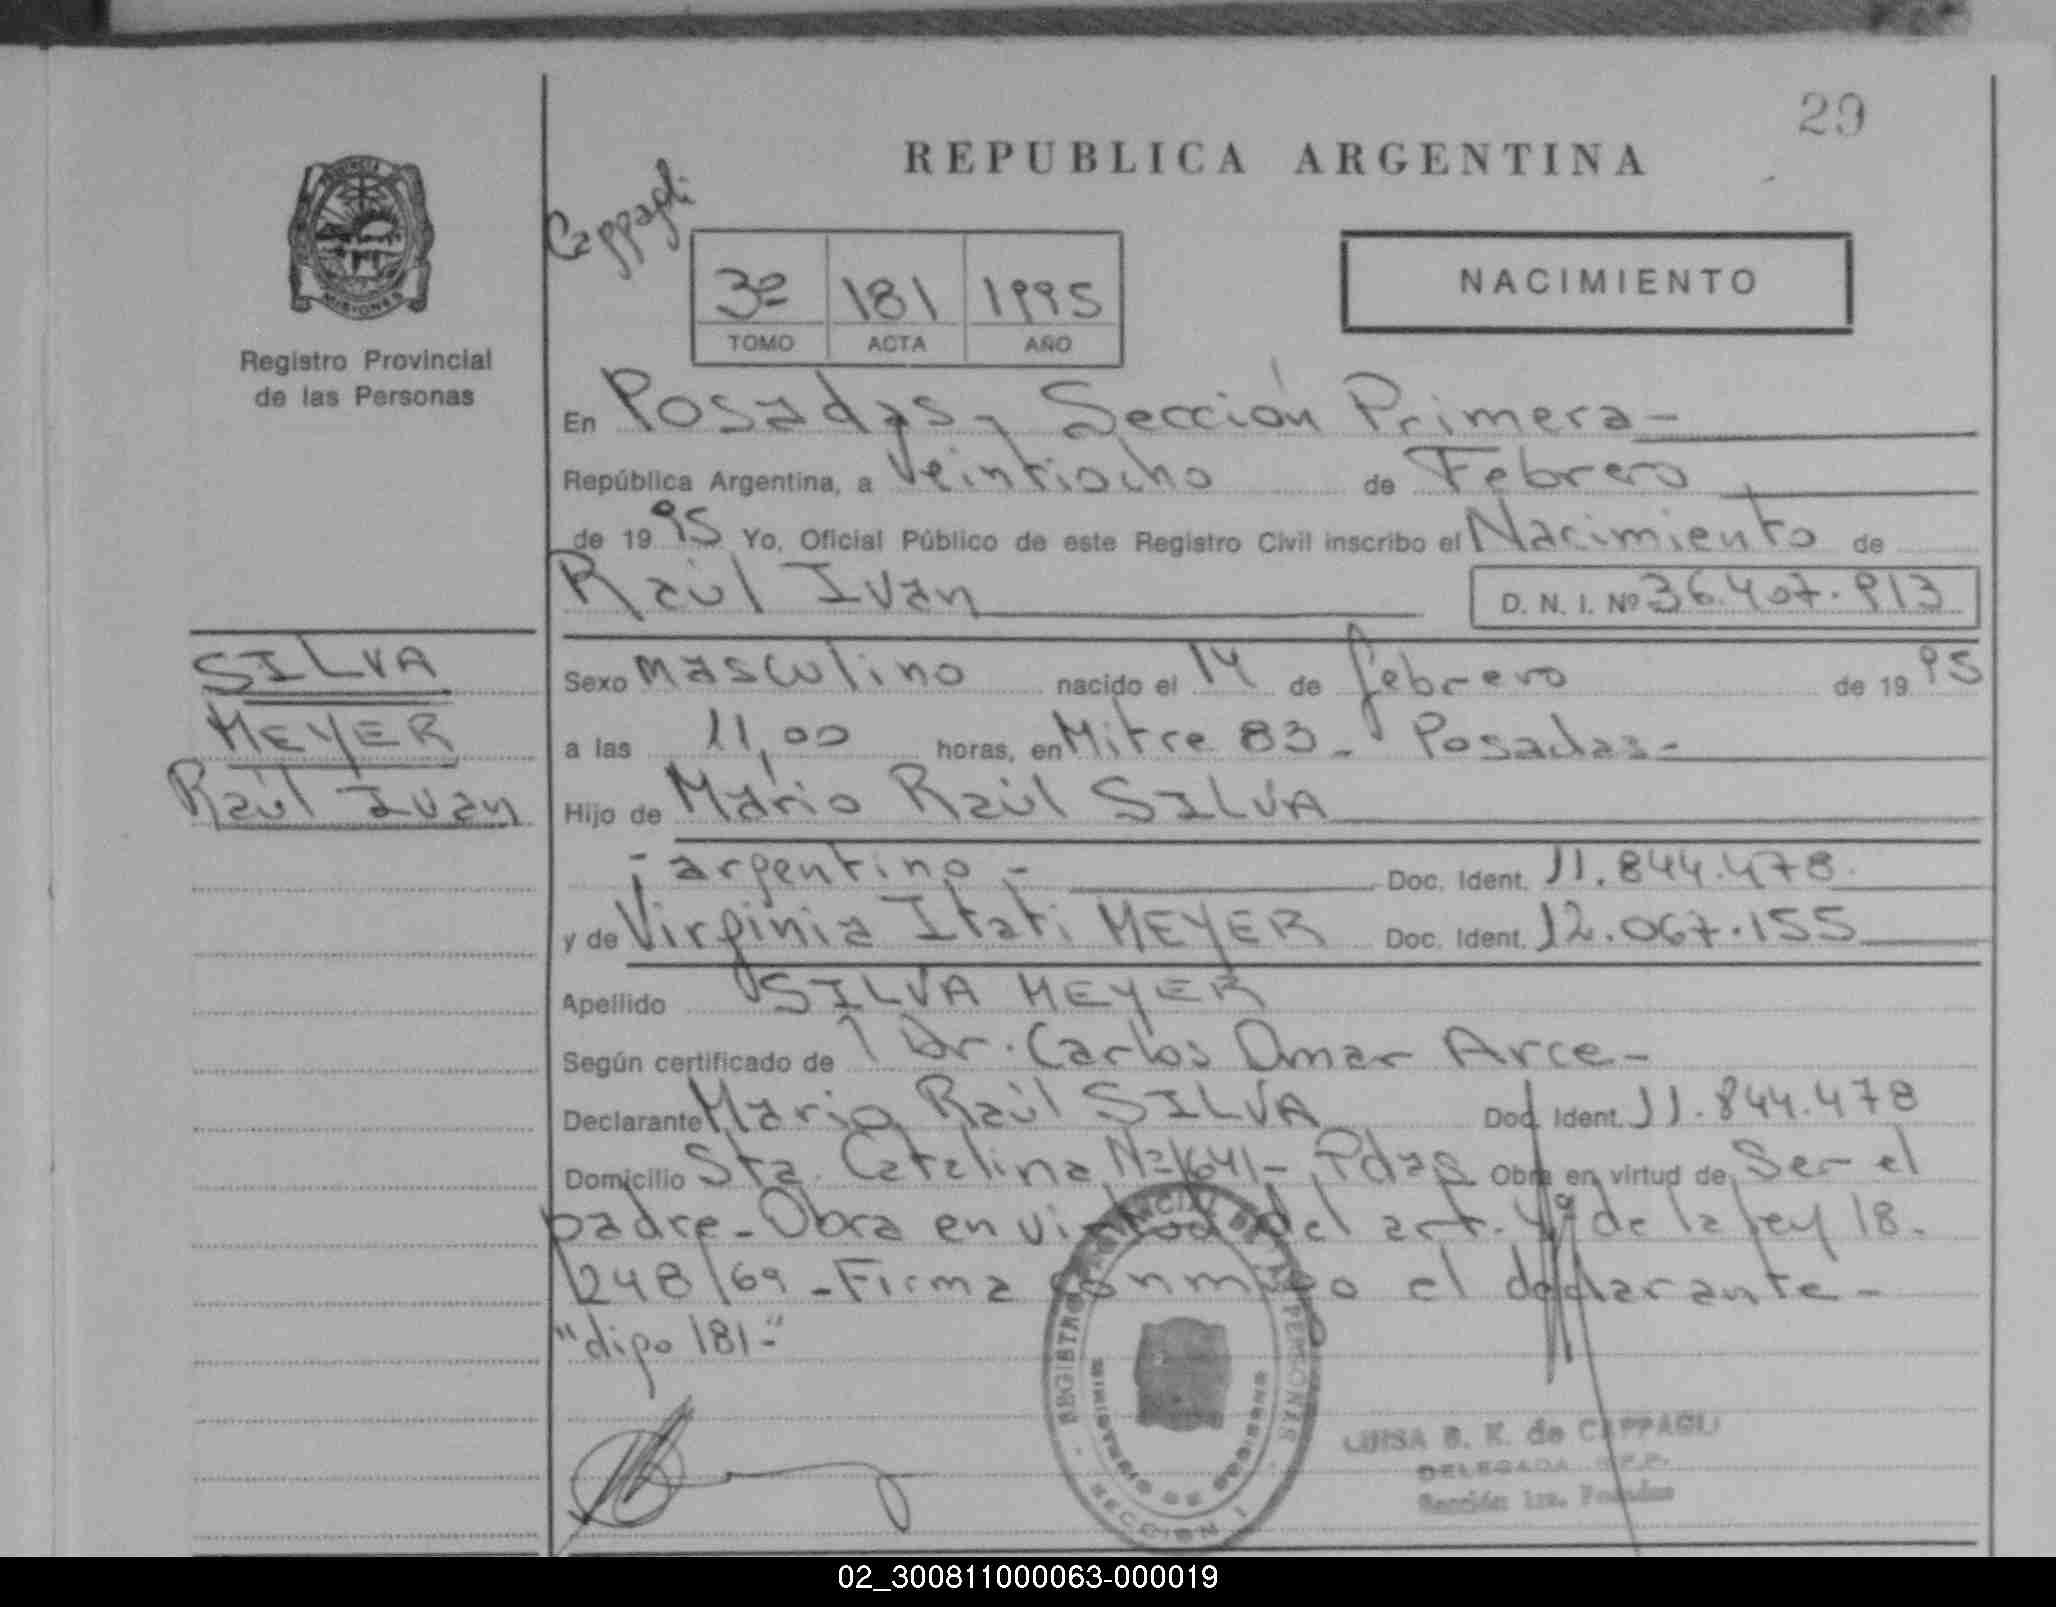 29
REPUBLICA ARGENTINA
PROVINCIA
MISIONES
Registro Provincial
de las Personas
Cappagli
3º 181 1995
TOMO ACTA AÑO
NACIMIENTO
En Posadas, Sección Primera -
República Argentina, a Veintiocho de Febrero
de 1995 Yo, Oficial Público de este Registro Civil inscribo el Nacimiento de
Raúl Ivan D. N. I. Nº 36.407.913
SILVA
MEYER
Raúl Ivan
Sexo masculino nacido el 14 de febrero de 1995
a las 11,00 horas, en Mitre 83 - Posadas -
Hijo de Mario Raúl SILVA
- argentino - Doc. Ident. 11.844.478.
y de Virginia Itatí MEYER Doc. Ident. 12.067.155
Apellido SILVA MEYER
Según certificado de Dr. Carlos Omar Arce -
Declarante Mario Raúl SILVA Doc. Ident. 11.844.478
Domicilio Sta. Catalina Nº 1641 - Pdas Obra en virtud de Ser el
padre - Obra en virtud del art. 4º de la ley 18.
248/69 - Firma conmigo el declarante -
"digo 181-"
REGISTRO PROVINCIAL DE LAS PERSONAS
MINISTERIO DE GOBIERNO
SECCION 1
LUISA B. K. de CAPPAGLI
DELEGADA R.P.P.
Sección 1ra. Posadas
02_300811000063-000019